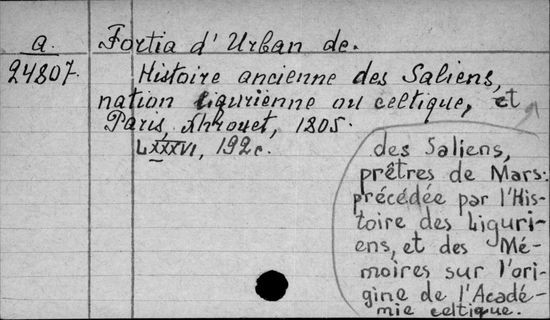 a.
24807.
Fortia d'Urban de.
Histoire ancienne des Saliens,
nation ligurienne ou celtique, et
Paris, Xhrouet, 1805.
LXXXVI, 192 c.
des Saliens,
prêtres de Mars:
précédée par l'His-
toire des Liguri-
ens, et des Mé-
moires sur l'ori-
gine de l'Acadé-
mie celtique.